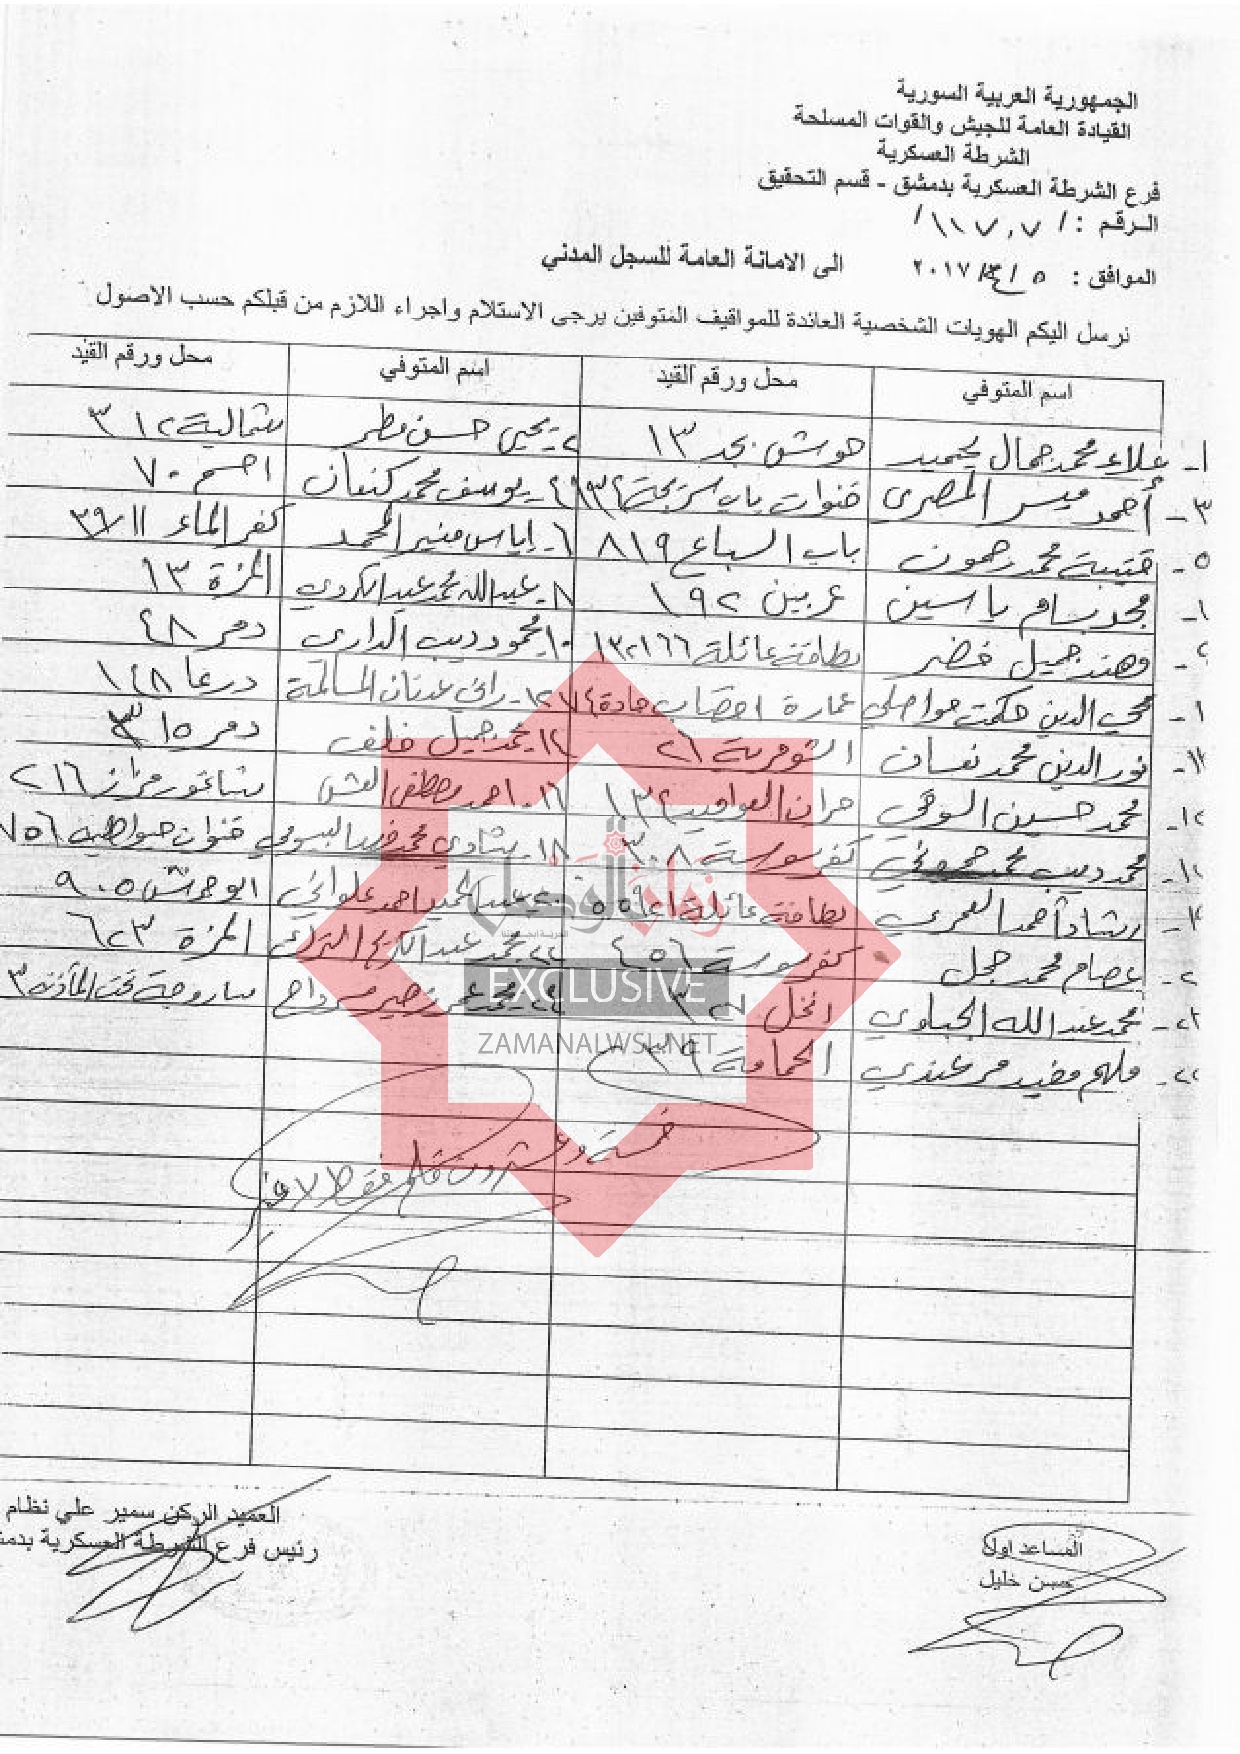 الجمهورية العربية السورية
القيادة العامة للجيش والقوات المسلحة
الشرطة العسكرية
فرع الشرطة العسكرية بدمشق - قسم التحقيق
الرقم : /١١٧٠٧/
الموافق : ٥ / / ٢٠١٧ الى الامانة العامة للسجل المدني
نرسل اليكم الهويات الشخصية العائدة للمواقيف المتوفين يرجى الاستلام واجراء اللازم من قبلكم حسب الاصول
اسم المتوفي محل ورقم القيد اسم المتوفي محل ورقم القيد
١- علاء محمد جمال يحميد حوش ١٣ ٢- يحيى حسن مطر شمالية ٣١٢
٣- أحمد ميسر المصري قنوات باب سريجة ٤- يوسف محمد كنعان احسم ٧٠
٥- قتيبة محمد رحمون باب السباع ٨١٩ ٦- إياس منير المحمد كفر الماء
مجد بسام ياسين عربين ١٩٢ ٨- عبد الله محمد عيد الكردي المزة ١٣
وهند جميل خضر بطاقة عائلة ١٣٢١٦٦ ١٠- محمود ديب الداري دمر ٤٨
محي الدين حكمت مواصلي عمارة جادة ١٢- راني عدنان المسالمة درعا ١٤٨
١٣- نور الدين محمد نعسان الشومرية ٢٦ محمد جميل خلف دمر ٣١٥
محمد حسين حران العواميد ١٣٢ ١٦- احمد مصطفى العش شاغور مزاز ٢١٦
محمد ديب محمد كفرسوسة ٣٠٨ ١٨- شادي محمد البيومي قنوات ٧٥٦
رشاد أحمد العمري بطاقة عائلية ٢٠- عبد الحميد احمد علواني ابو حمرش ٩٠٥
عصام محمد حجل كفرسوسة ٤٥٦ ٢٢- محمد عبد الكريم المزة ٦٢٣
٢٣- محمد عبد الله الجباوي انخل ٣٢ ٢٤- محمد عمر نصير ساروجة تحت المأذنة ٣
ملهم مفيد مرعندي الحمامة ٣٩
زمان الوصل
EXCLUSIVE
ZAMANALWSL.NET
خمسة وعشرون فقط لا غير
المساعد اول
حسن خليل
العميد الركن سمير علي نظام
رئيس فرع الشرطة العسكرية